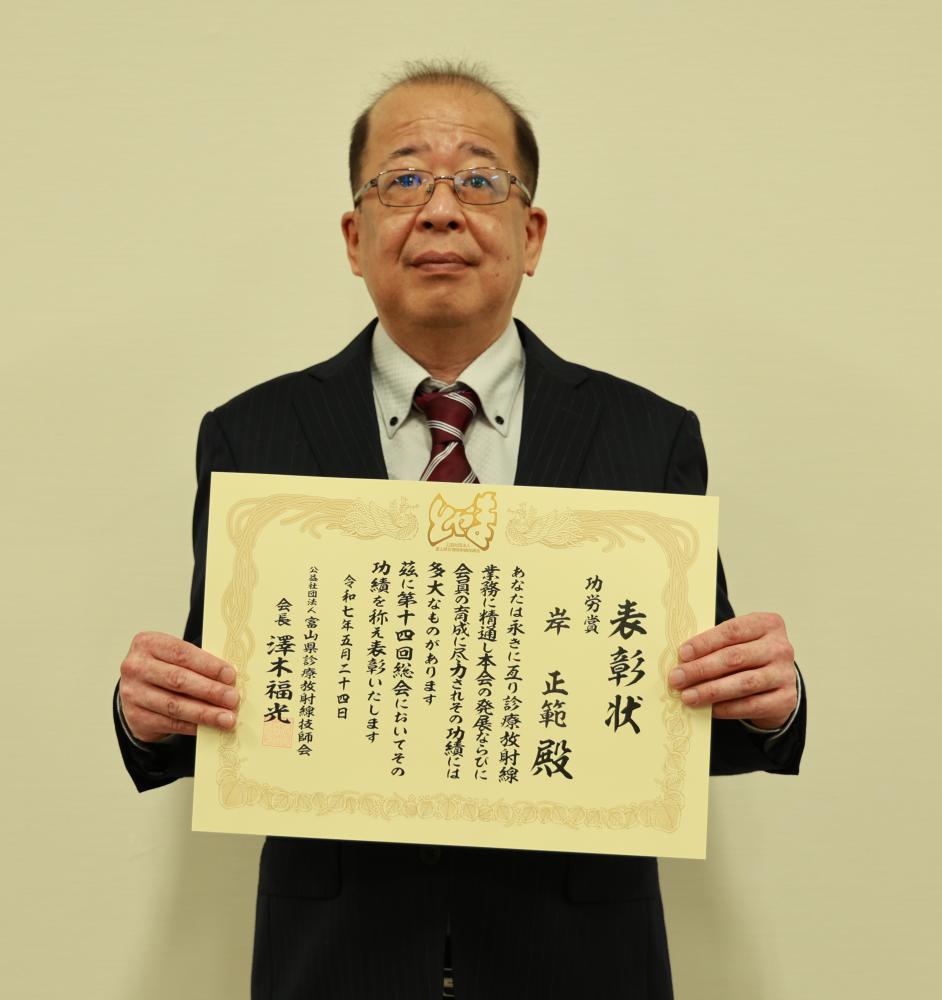 とやま
公益社団法人
富山県診療放射線技師会
表彰状
功労賞
岸 正範 殿
あなたは永きに亙り診療放射線
業務に精通し本会の発展ならびに
会員の育成に尽力されその功績には
多大なものがあります
茲に第十四回総会においてその
功績を称え表彰いたします
令和七年五月二十四日
公益社団法人富山県診療放射線技師会
会長 澤木福光